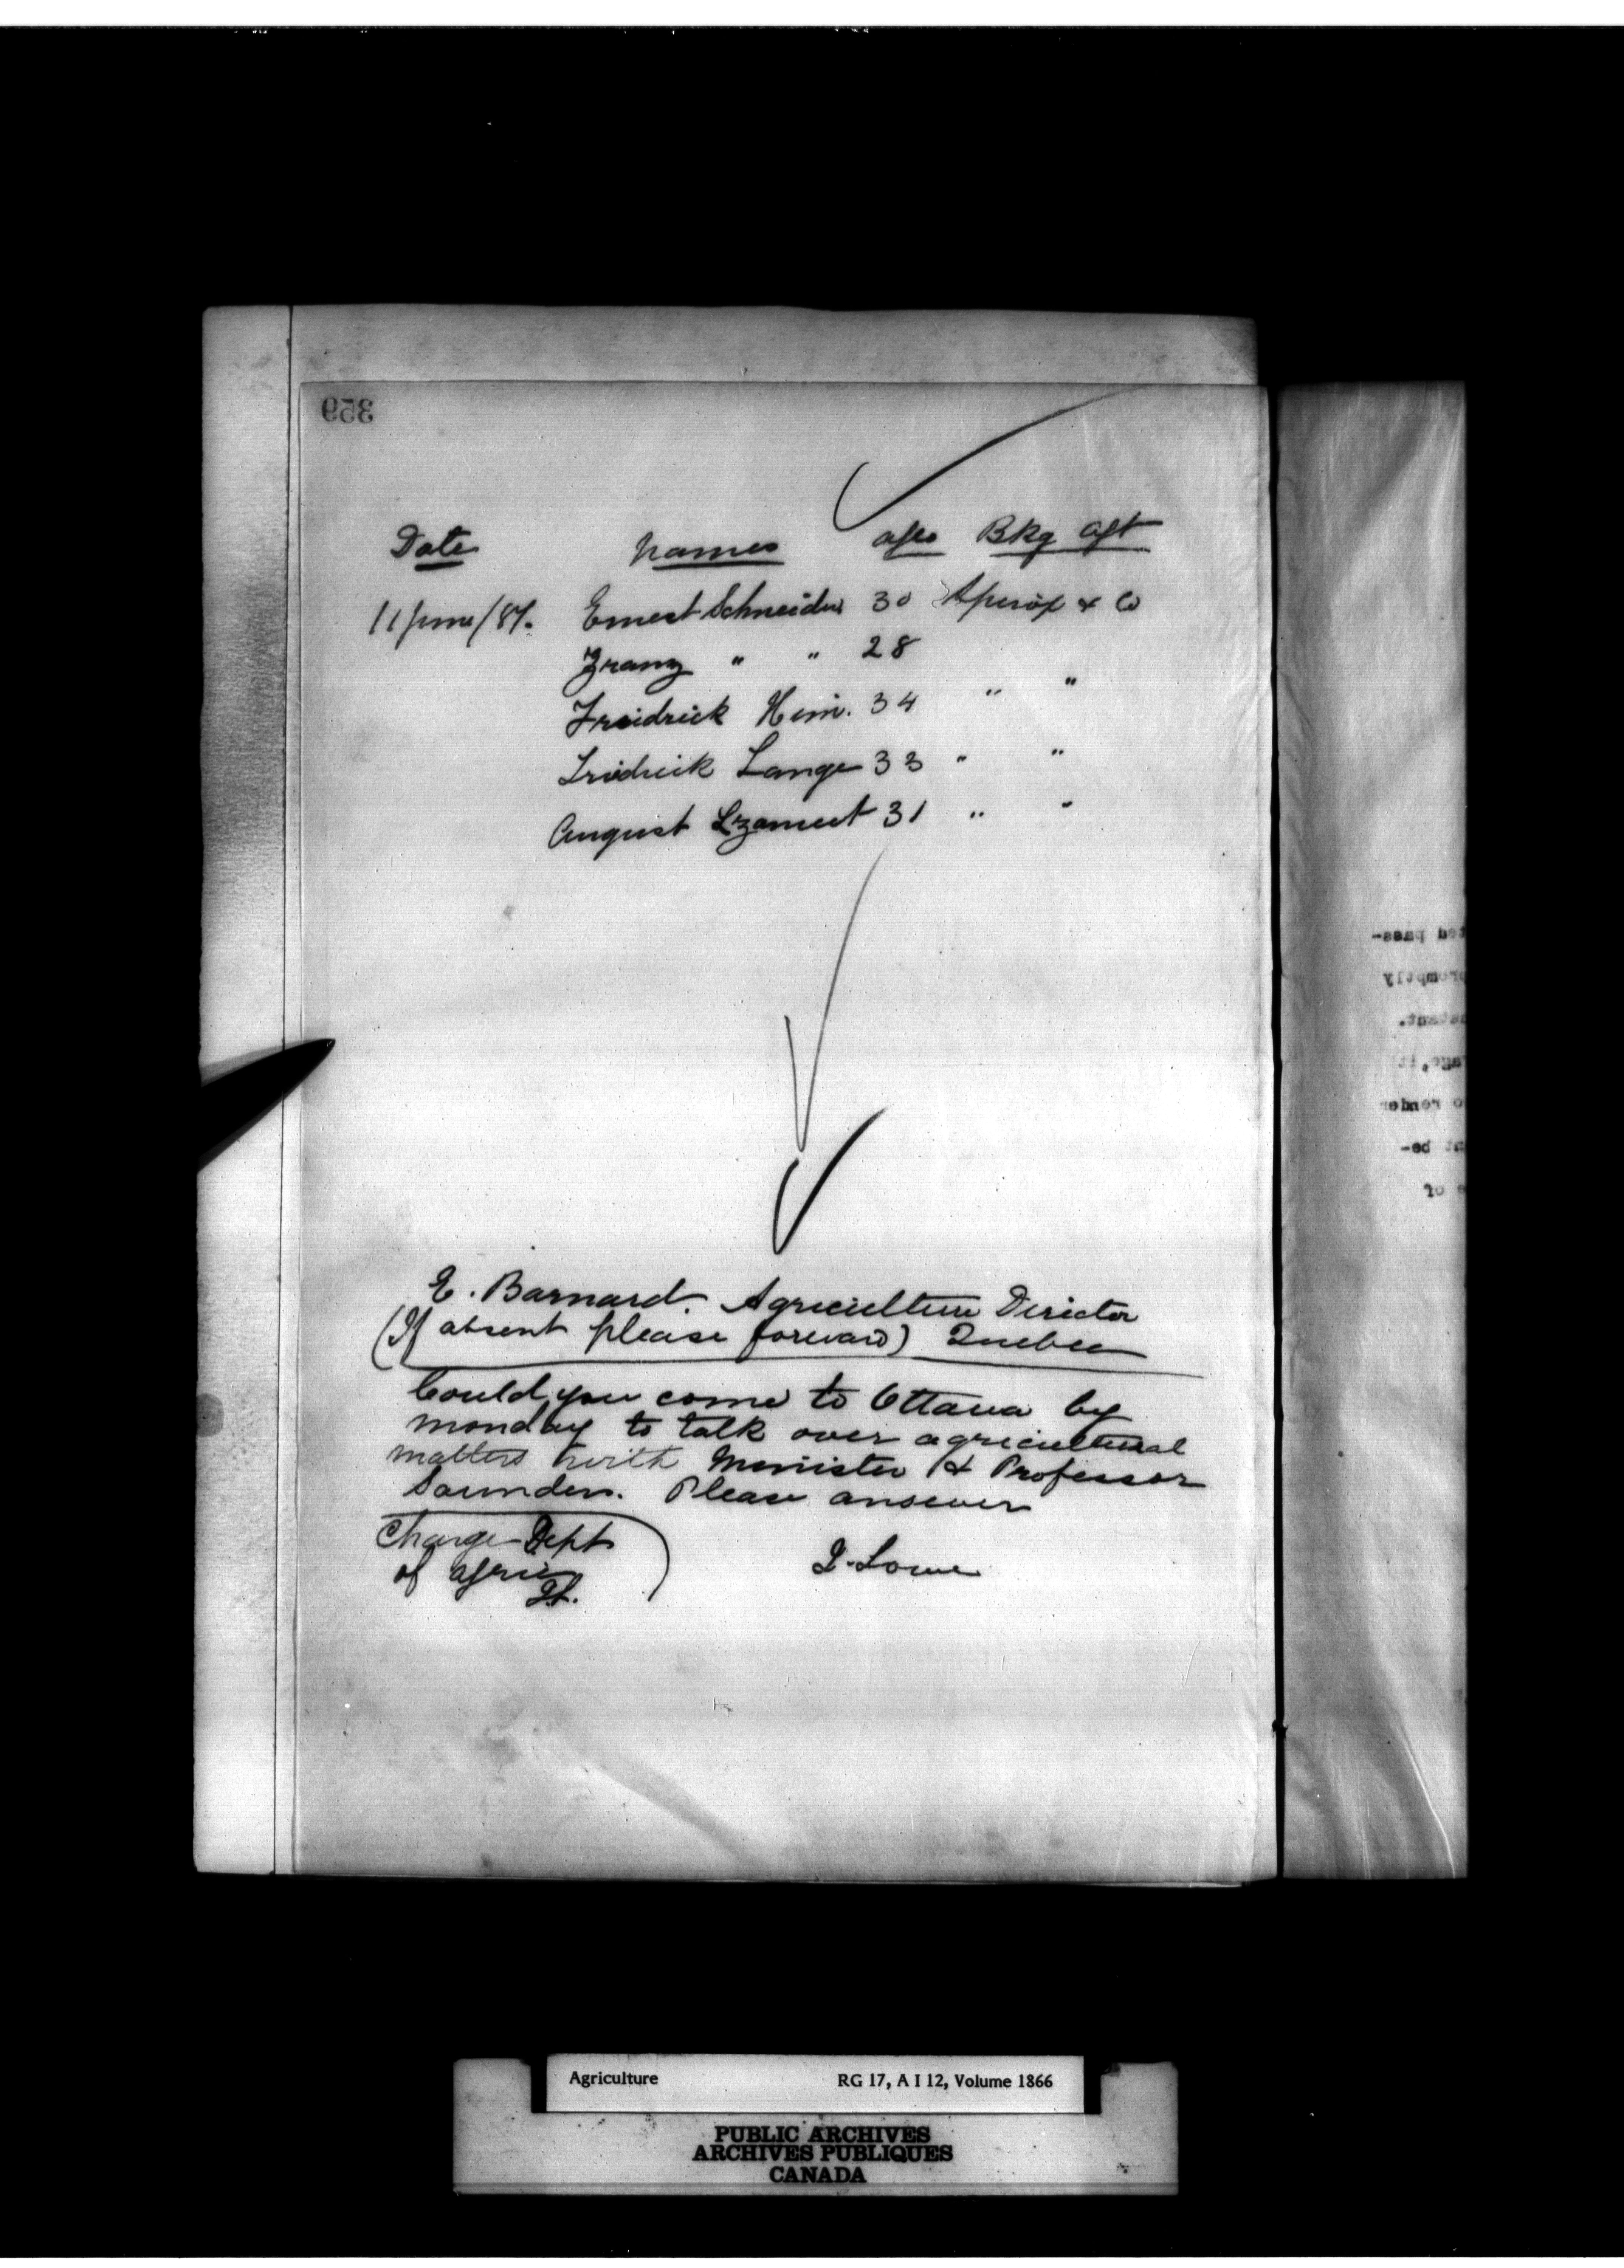 359
Date names ages Bkg agt
11 June/87. Ernest Schneider 30 & Co
Franz " " 28
Freidrick Heim. 34 " "
Fredrick Lange 33 " "
August 31 " "
E. Barnard. Agriculture Director
(If absent please forward) Quebec
Could you come to Ottawa by
monday to talk over agricultural
matters with Minister & Professor
Saunders. Please answer
Charge Dept
of Agric
J.L.
J. Lowe
ted pass-
promptly
stant.
age, it
o render
nt be-
e of
Agriculture RG 17, A I 12, Volume 1866
PUBLIC ARCHIVES
ARCHIVES PUBLIQUES
CANADA